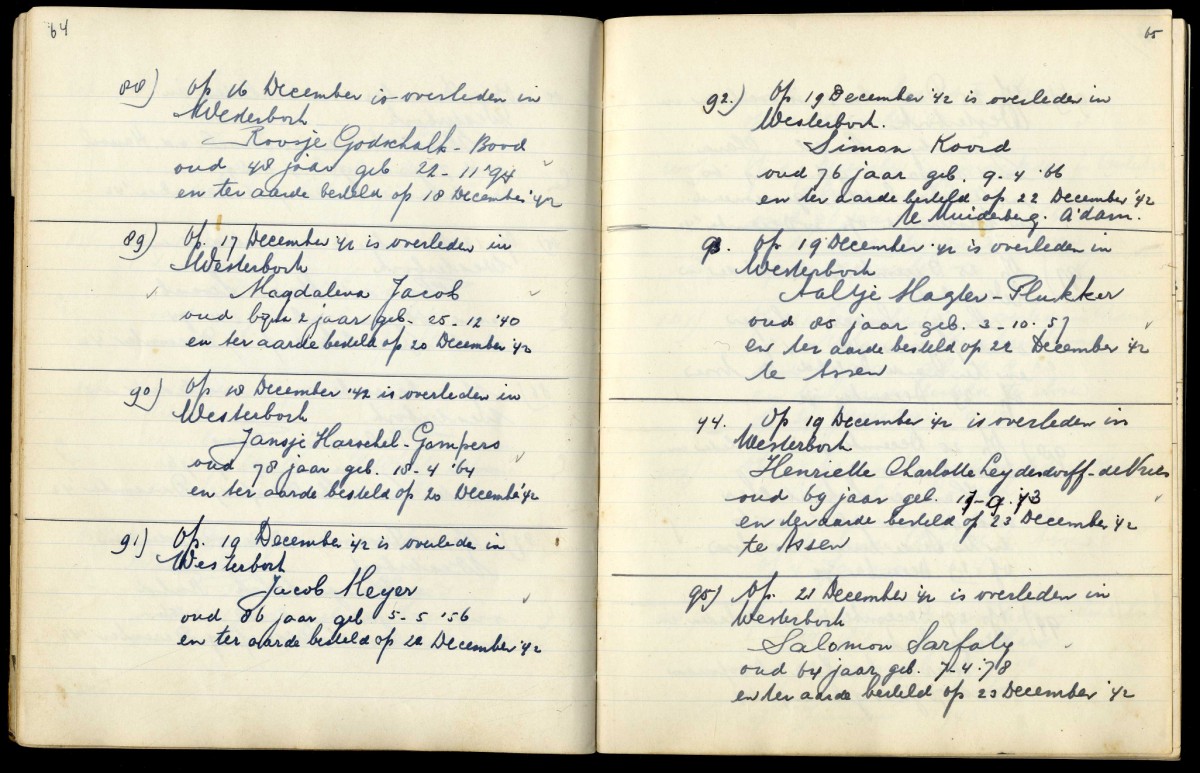 64
88) Op 16 December is overleden in
Westerbork
Roosje Godschalk - Bood
oud 48 jaar geb 22 - 11 '94
en ter aarde besteld op 18 December '42
89) Op. 17 December '42 is overleden in
Westerbork
Magdalena Jacob
oud bijna 2 jaar geb. 25 - 12 '40
en ter aarde besteld op 20 December '42
90) Op 18 December '42 is overleden in
Westerbork
Jansje Harschel - Gompers
oud 78 jaar geb. 18 - 4 '64
en ter aarde besteld op 20 December '42
91) Op. 19 December '42 is overlede in
Westerbork
Jacob Meyer
oud 86 jaar geb 5 - 5 '56
en ter aarde besteld op 22 December '42
65
92.) Op 19 December '42 is overleden in
Westerbork.
Simon Koord
oud 76 jaar geb. 9. 4 '66
en ter aarde besteld op 22 December '42
te Muiderberg. A'dam.
93. Op. 19 December '42 is overleden in
Westerbork
Aaltje Hagler - Plukker
oud 85 jaar geb. 3 - 10. 57
en ter aarde besteld op 22 December '42
te Assen
94. Op 19 December '42 is overleden in
Westerbork
Henriette Charlotte Leydesdorff - de Vries
oud 69 jaar geb. 17 - 9. '73
en ter aarde besteld op 23 December '42
te Assen
95) Op. 21 December '42 is overleden in
Westerbork
Salomon Sarfaty
oud 64 jaar geb. 7 - 4 '78
en ter aarde besteld op 23 December '42